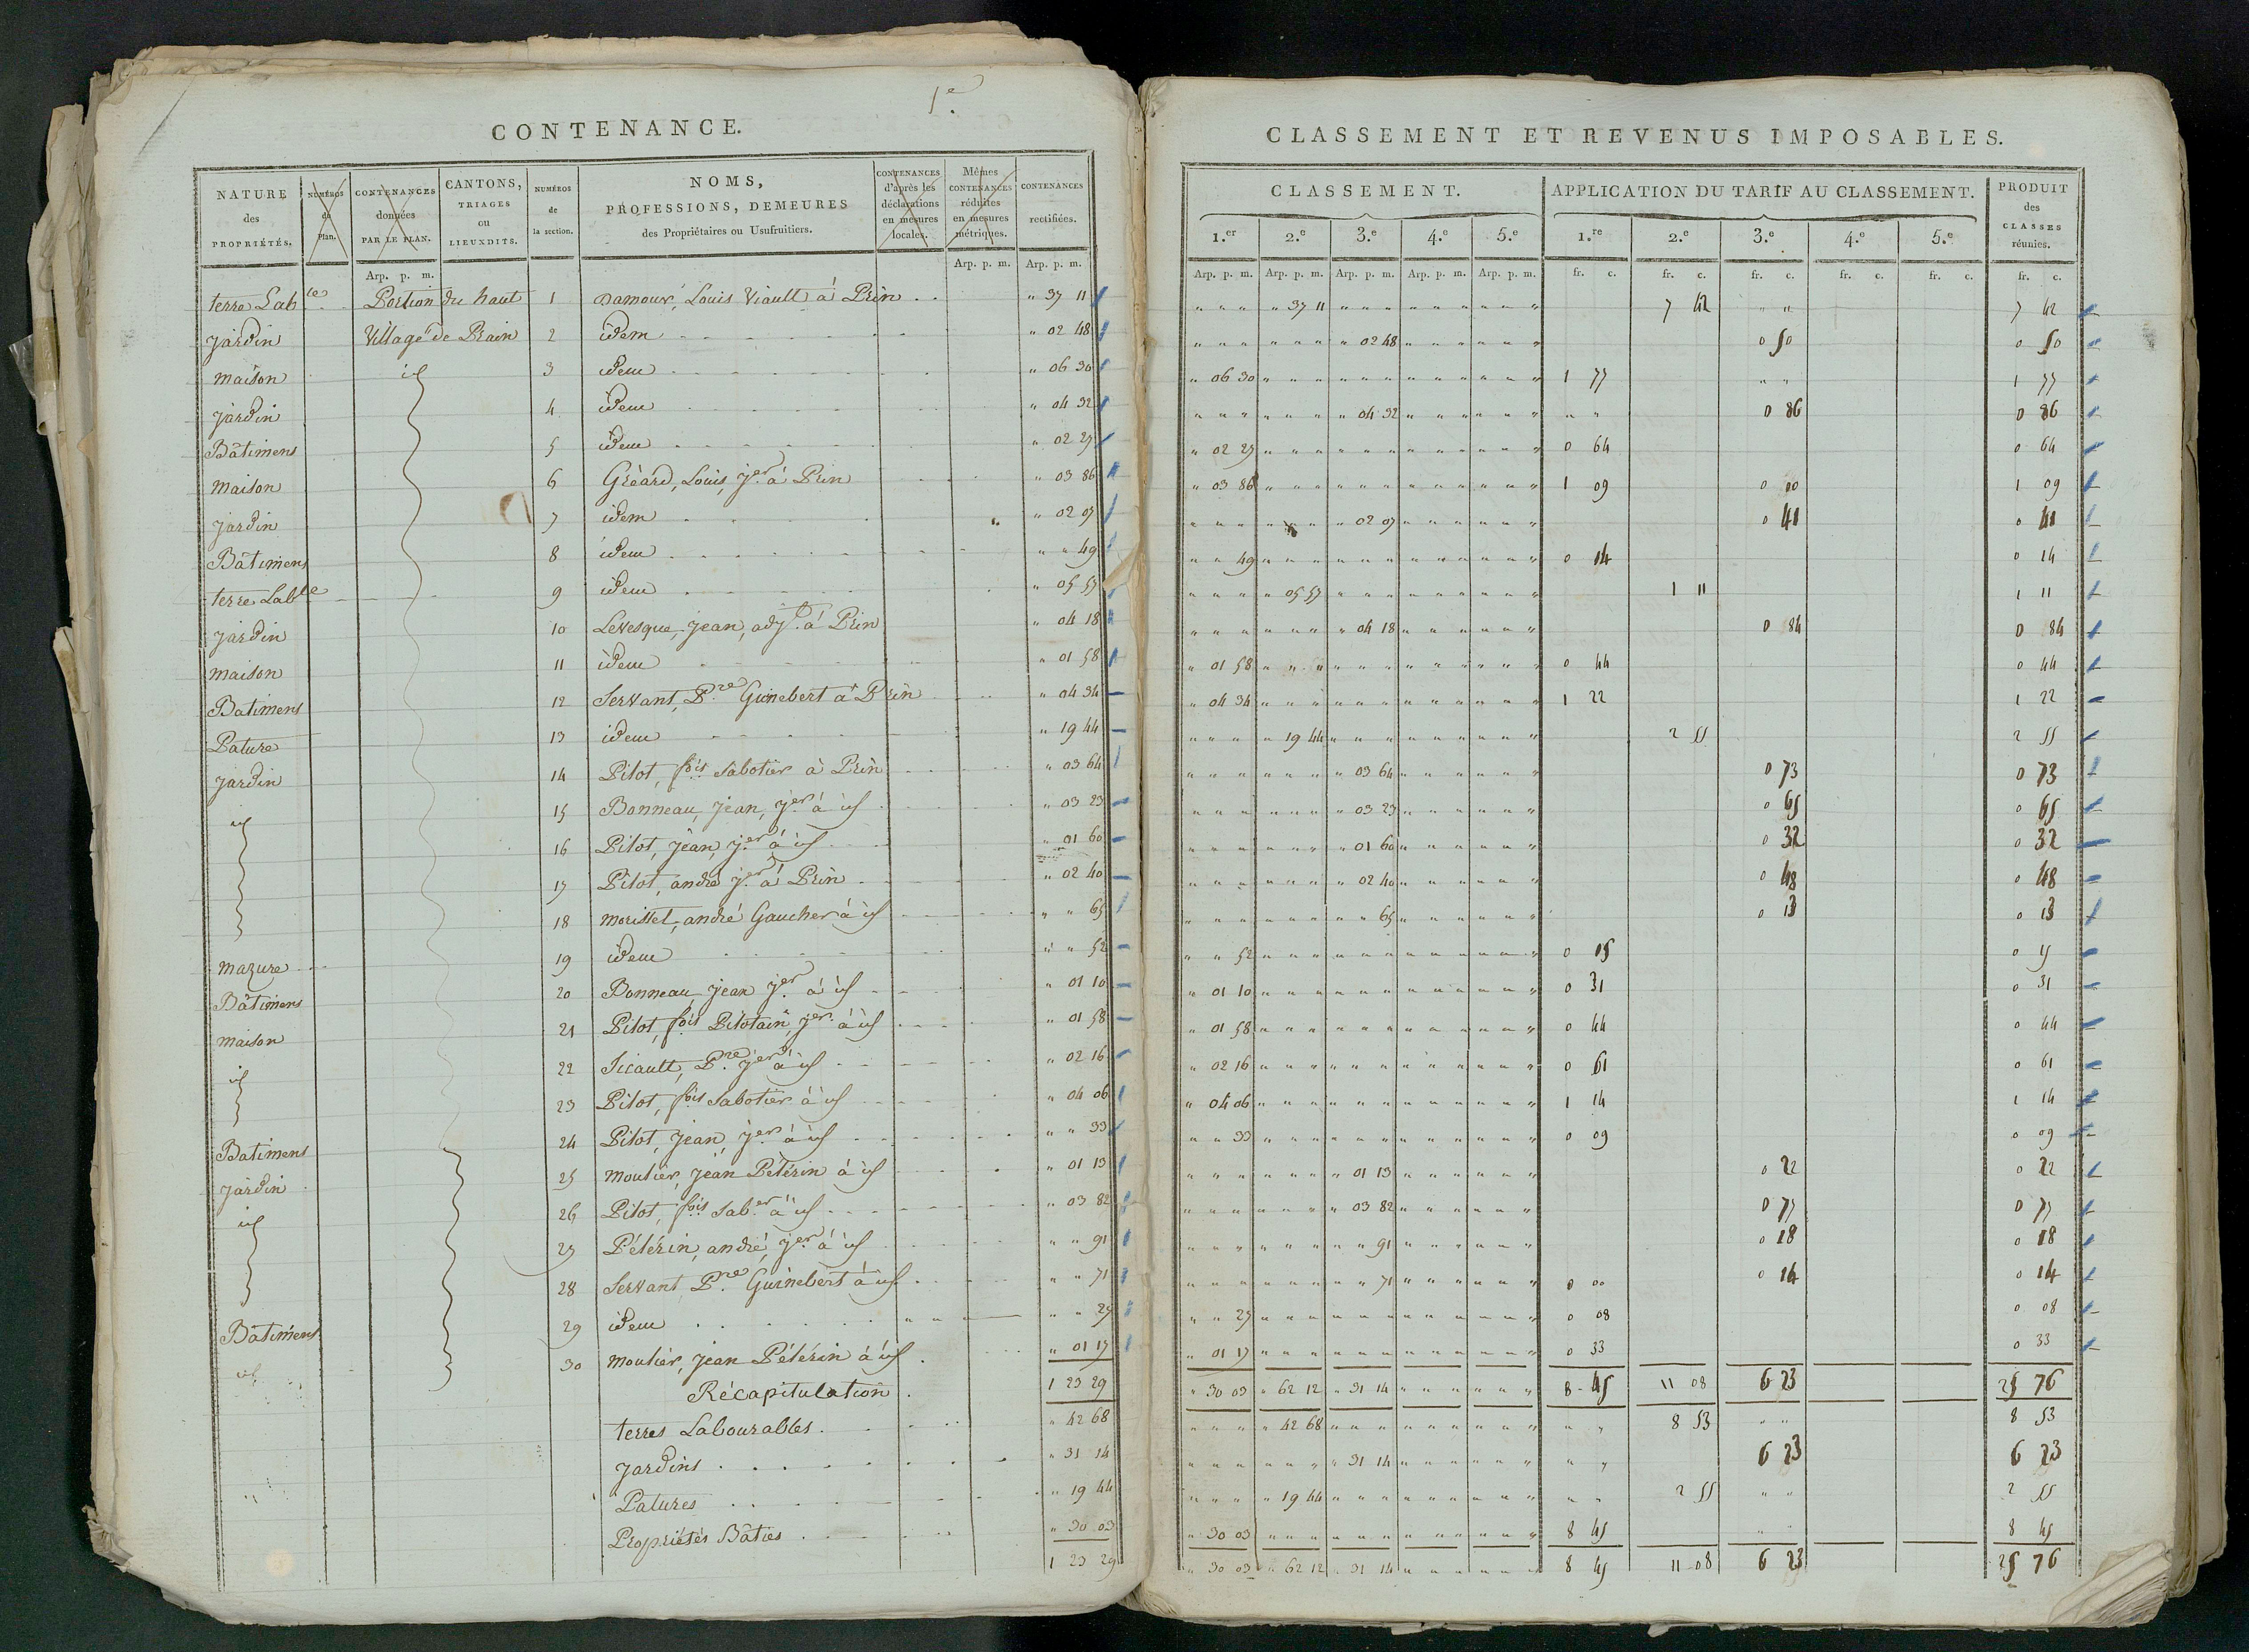 1e.
CONTENANCE.
NATURE des PROPRIÉTÉS. NUMÉROS du Plan. CONTENANCES données PAR LE PLAN. CANTONS, TRIAGES ou LIEUXDITS. NUMÉROS de la section. NOMS, PROFESSIONS, DEMEURES des Propriétaires ou Usufruitiers. CONTENANCES d'après les déclarations en mesures locales. Mêmes CONTENANCES réduites en mesures métriques. CONTENANCES rectifiées.
Arp. p. m. Arp. p. m. Arp. p. m.
terre Lable Portion du haut 1 Damour, Louis Viault à Prin " 37 11
jardin Village de Prain 2 idem " 02 48
maison id 3 idem " 06 30
jardin 4 idem " 04 32
Bâtimens 5 idem " 02 27
maison 6 Gréard, Louis, jer. à Prin " 03 86
jardin 7 idem " 02 07
Bâtimens 8 idem " " 49
terre Lable 9 idem " 05 57
jardin 10 Levesque, jean, adjt. à Prin " 04 18
maison 11 idem " 01 58
Batimens 12 Servant, Pre. Guinebert à Prin " 04 34
Pature 13 idem " 19 44
jardin 14 Pilot, fois Sabotier à Prin " 03 64
id 15 Bonneau, jean, jer. à id " 03 23
16 Pilot, jean, jer. à id " 01 60
17 Pilot, andré jer. à Prin " 02 40
18 morisset, andré Gaucher à id " " 65
mazure 19 idem " " 52
Bâtimens 20 Bonneau, jean jer. à id " 01 10
maison 21 Pilot, fois Pilotain, jer. à id " 01 58
id 22 Sicault, Pre. jer. à id " 02 16
23 Pilot, fois Sabotier à id " 04 06
Batimens 24 Pilot, jean, jer. à id " " 33
jardin 25 moulier, jean Pélérin à id " 01 13
id 26 Pilot, fois Saber. à id " 03 82
27 Pélérin, andré, jer. à id " " 91
28 Servant, Pre. Guinebert à id " " 71
Bâtimens 29 idem " " 27
id 30 moulier, jean Pélérin à id " 01 17
Récapitulation 1 23 29
terres Labourables " 42 68
jardins " 31 14
Patures " 19 44
Propriétés Bâties " 30 03
1 23 29
CLASSEMENT ET REVENUS IMPOSABLES.
CLASSEMENT. APPLICATION DU TARIF AU CLASSEMENT. PRODUIT des CLASSES réunies.
1.er 2.e 3.e 4.e 5.e 1.re 2.e 3.e 4.e 5.e
Arp. p. m. Arp. p. m. Arp. p. m. Arp. p. m. Arp. p. m. fr. c. fr. c. fr. c. fr. c. fr. c. fr. c.
" 37 11 7 42 " " 7 42
" 02 48 0 50 0 50
" 06 30 1 77 " " 1 77
" 04 32 " " 0 86 0 86
" 02 27 0 64 0 64
" 03 86 1 09 0 00 1 09
" 02 07 0 41 0 41
" " 49 0 14 0 14
" 05 57 1 11 1 11
" 04 18 0 84 0 84
" 01 58 0 44 0 44
" 04 34 1 22 1 22
" 19 44 2 55 2 55
" 03 64 0 73 0 73
" 03 23 0 65 0 65
" 01 60 0 32 0 32
" 02 40 0 48 0 48
" " 65 0 13 0 13
" " 52 0 15 0 15
" 01 10 0 31 0 31
" 01 58 0 44 0 44
" 02 16 0 61 0 61
" 04 06 1 14 1 14
" " 33 0 09 0 09
" 01 13 0 22 0 22
" 03 82 0 77 0 77
" " 91 0 18 0 18
" " 71 0 00 0 14 0 14
" " 27 0 08 0 08
" 01 17 0 33 0 33
" 30 03 " 62 12 " 31 14 8 45 11 08 6 23 25 76
" 42 68 " " 8 53 " " 8 53
" 31 14 " " 6 23 6 23
" 19 44 " " 2 55 " " 2 55
" 30 03 8 45 " " 8 45
" 30 03 " 62 12 " 31 14 8 45 11 08 6 23 25 76